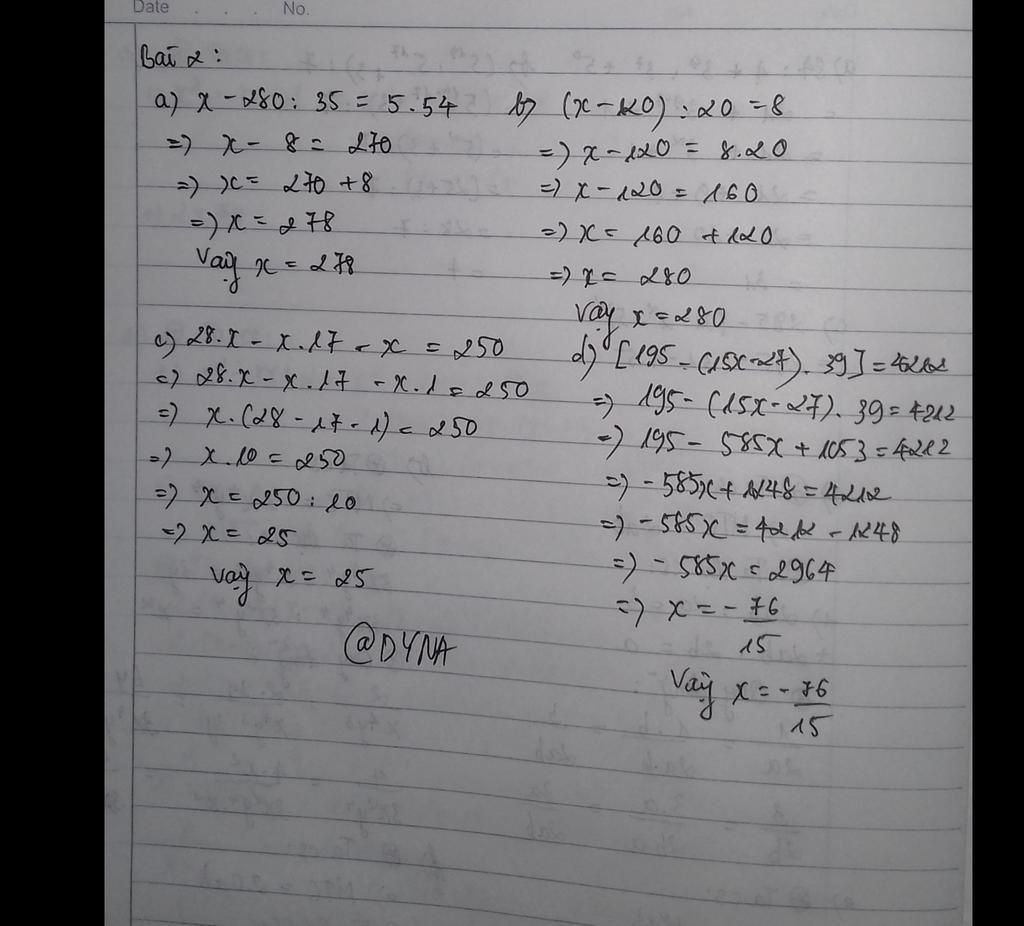 Date . . . No.
Bài 2:
a) x - 280 : 35 = 5.54
=) x - 8 = 270
=) x = 270 + 8
=) x = 278
Vậy x = 278
b) (x - 120) : 20 = 8
=) x - 120 = 8.20
=) x - 120 = 160
=) x = 160 + 120
=) x = 280
Vậy x = 280
c) 28.x - x.17 - x = 250
=) 28.x - x.17 - x.1 = 250
=) x.(28 - 17 - 1) = 250
=) x.10 = 250
=) x = 250 : 10
=) x = 25
Vậy x = 25
d) [195 - (15x - 27). 39] = 4212
=) 195 - (15x - 27). 39 = 4212
=) 195 - 585x + 1053 = 4212
=) - 585x + 1248 = 4212
=) - 585x = 4212 - 1248
=) - 585x = 2964
=) x = - 76/15
Vậy x = - 76/15
@DYNA